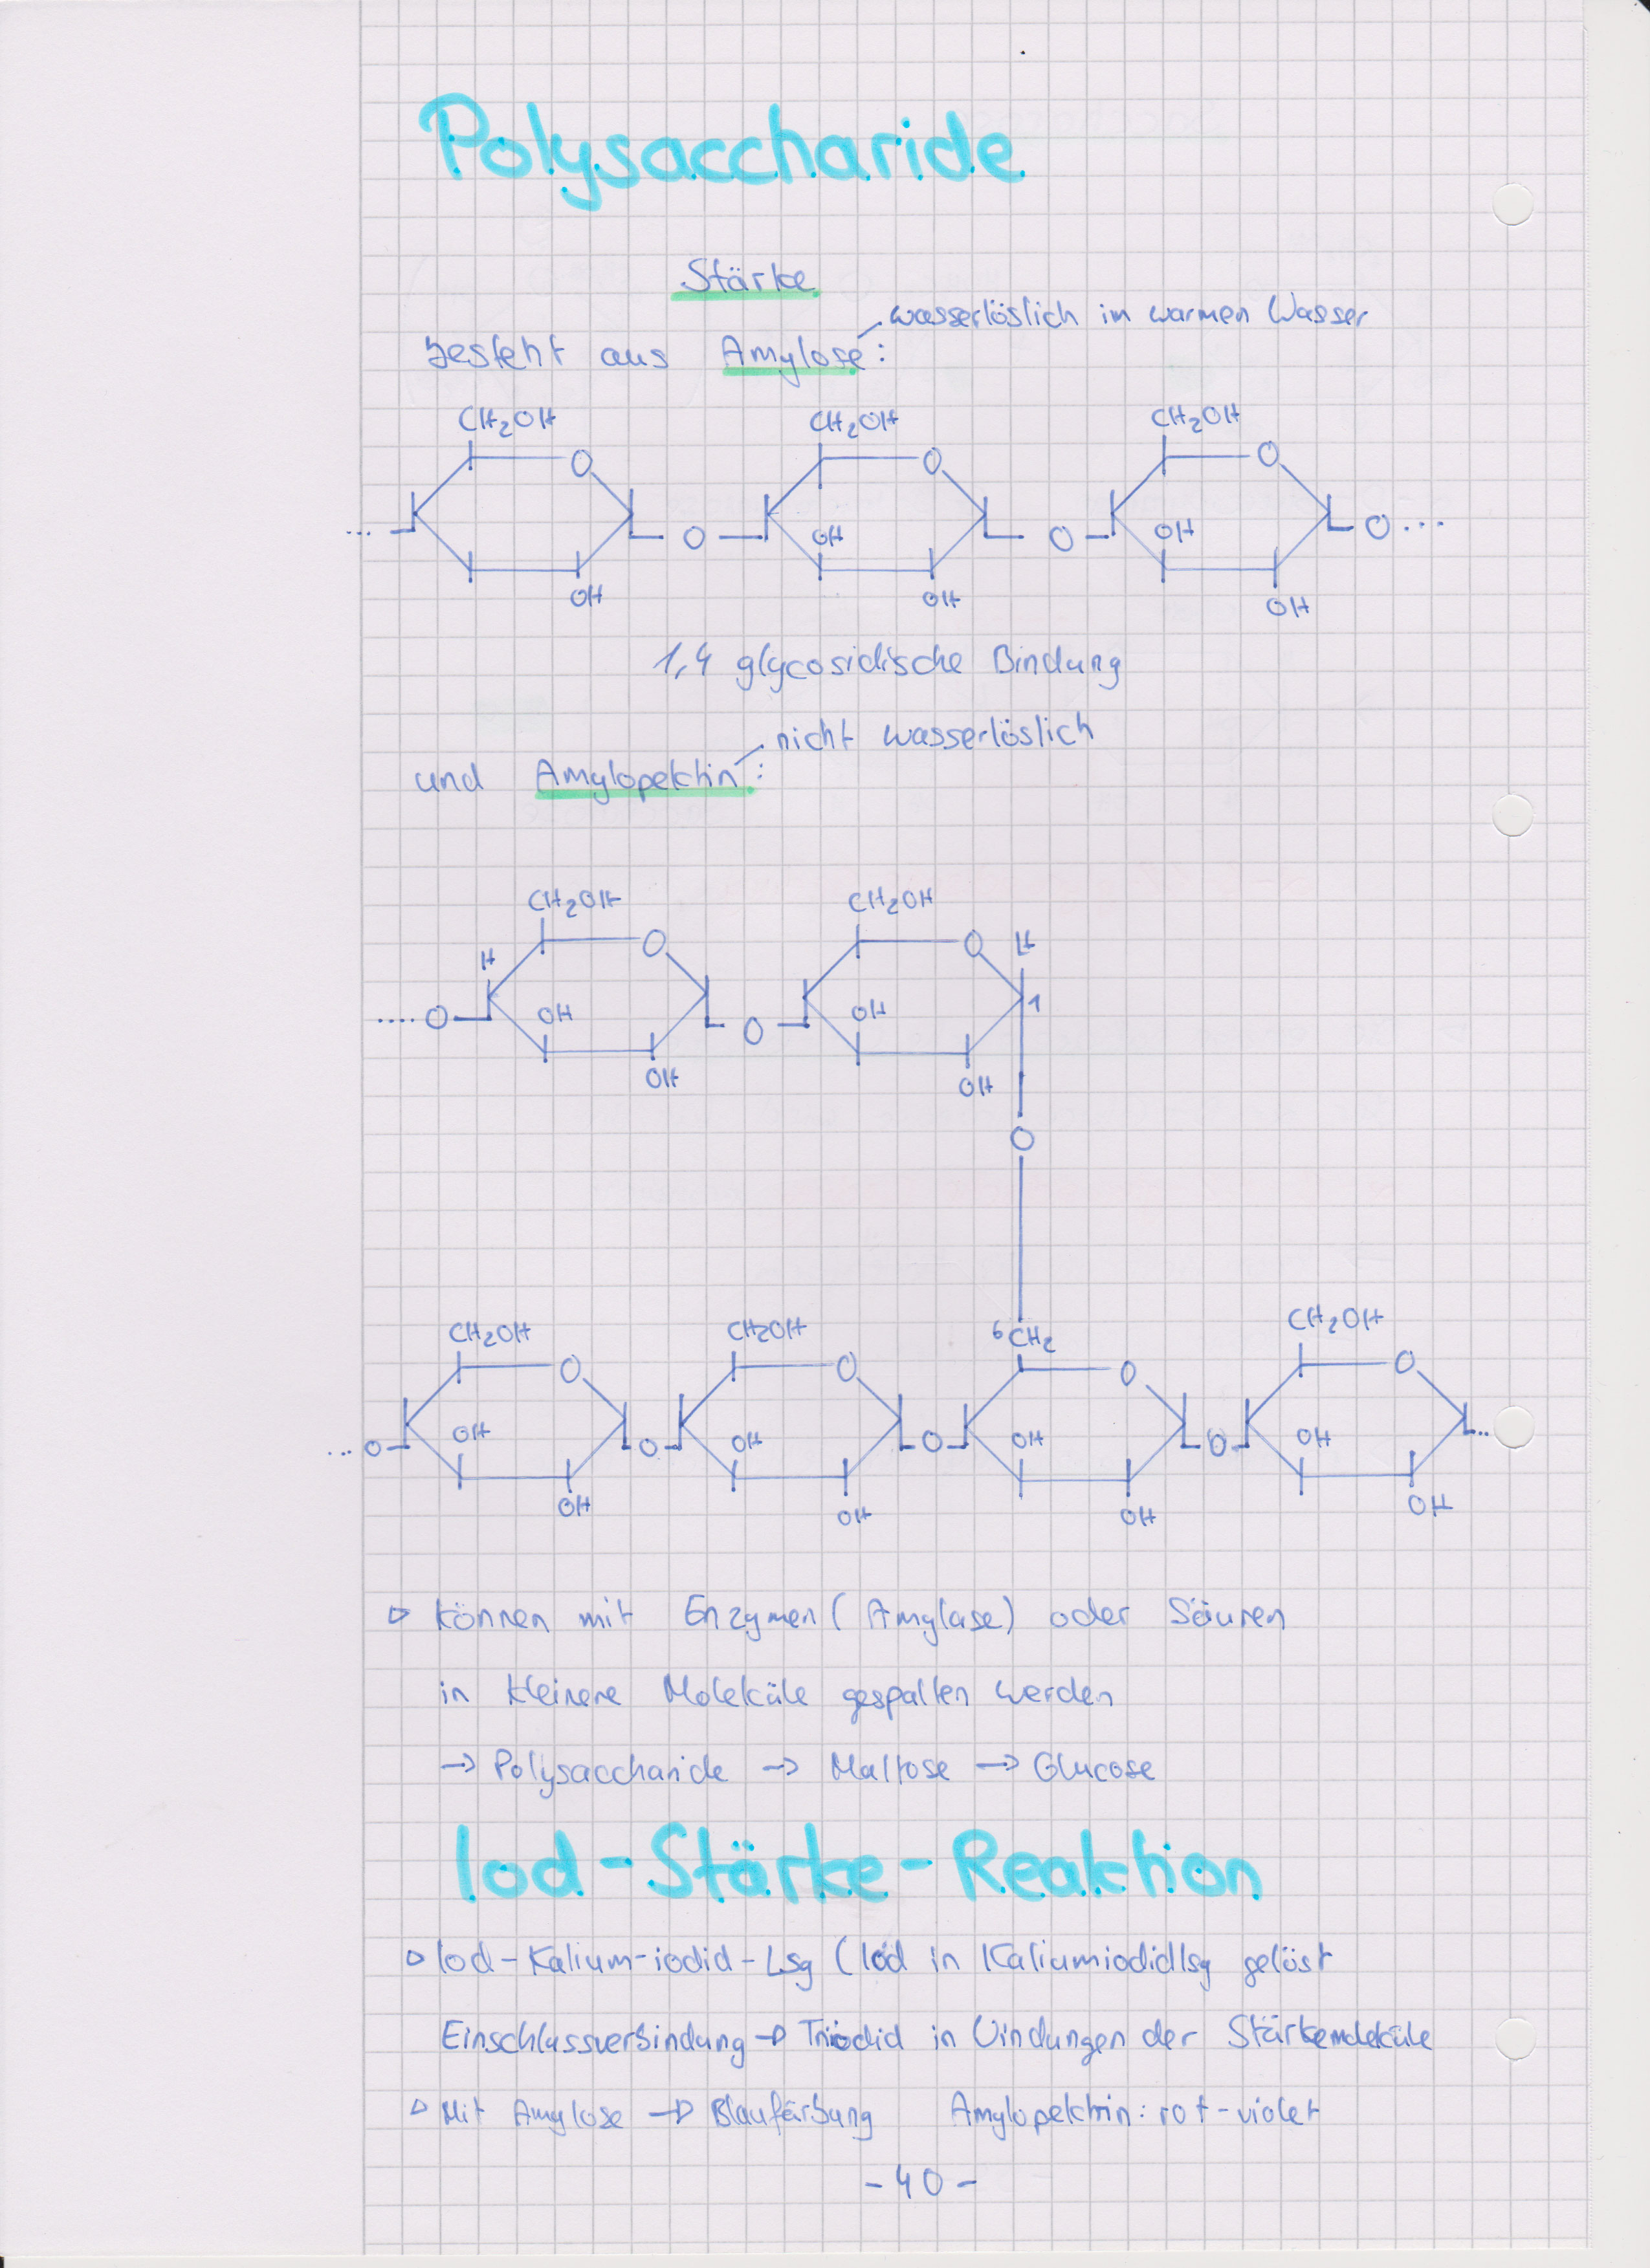 Polysaccharide
Stärke
wasserlöslich in warmen Wasser
besteht aus Amylose:
CH₂OH CH₂OH CH₂OH
O O O
... O O O ...
OH OH
OH OH OH
1,4 glycosidische Bindung
nicht wasserlöslich
und Amylopektin:
CH₂OH CH₂OH
H O O H
.... O OH O OH 1
OH OH
O
CH₂OH CH₂OH ⁶CH₂ CH₂OH
O O O O
.. O OH O OH O OH O OH ..
OH OH OH OH
▷ können mit Enzymen (Amylase) oder Säuren
in kleinere Moleküle gespalten werden
→ Polysaccharide → Maltose → Glucose
Iod-Stärke-Reaktion
▷ Iod-Kalium-iodid-Lsg (Iod in Kaliumiodidlsg gelöst
Einschlussverbindung → Triiodid in Windungen der Stärkemoleküle
▷ Mit Amylose → Blaufärbung Amylopektin: rot-violet
- 40 -